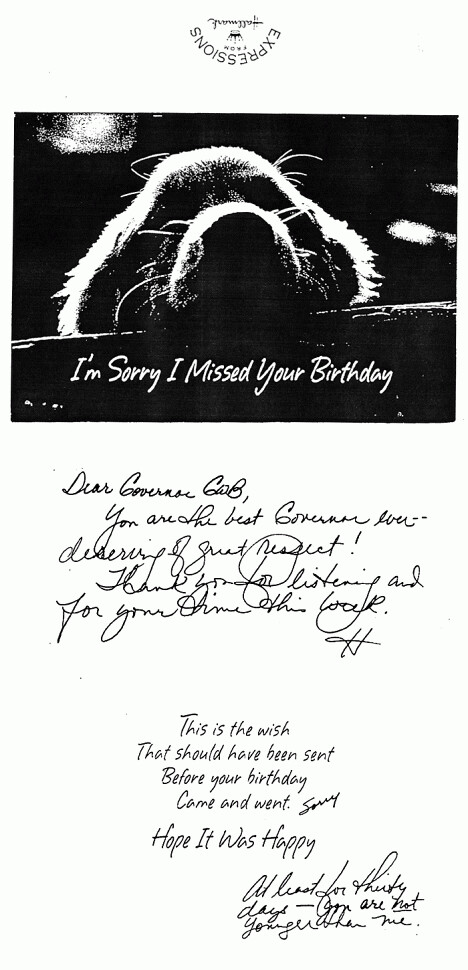 Hallmark
FROM
EXPRESSIONS
I'm Sorry I Missed Your Birthday
Dear Governor GWB,
You are the best Governor ever--
deserving of great respect!
Thank you for listening and
for your time this week.
H
This is the wish
That should have been sent
Before your birthday
Came and went. Sorry
Hope It Was Happy
At least for thirty
days - you are not
younger than me.